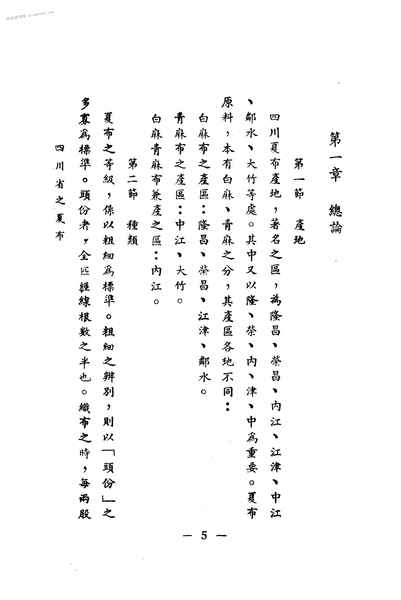 第一章　總論
第一節　產地
四川夏布產地，著名之區，為隆昌、榮昌、內江、江津、中江
、鄰水、大竹等處。其中又以隆、榮、內、津、中為重要。夏布
原料，本有白麻、青麻之分，其產區各地不同：
白麻布之產區：隆昌、榮昌、江津、鄰水。
青麻布之產區：中江、大竹。
白麻青麻布兼產之區：內江。
第二節　種類
夏布之等級，係以粗細為標準。粗細之辨別，則以「頭份」之
多寡為標準。頭份者，全匹經線根數之半也。織布之時，每兩股
四川省之夏布
— 5 —